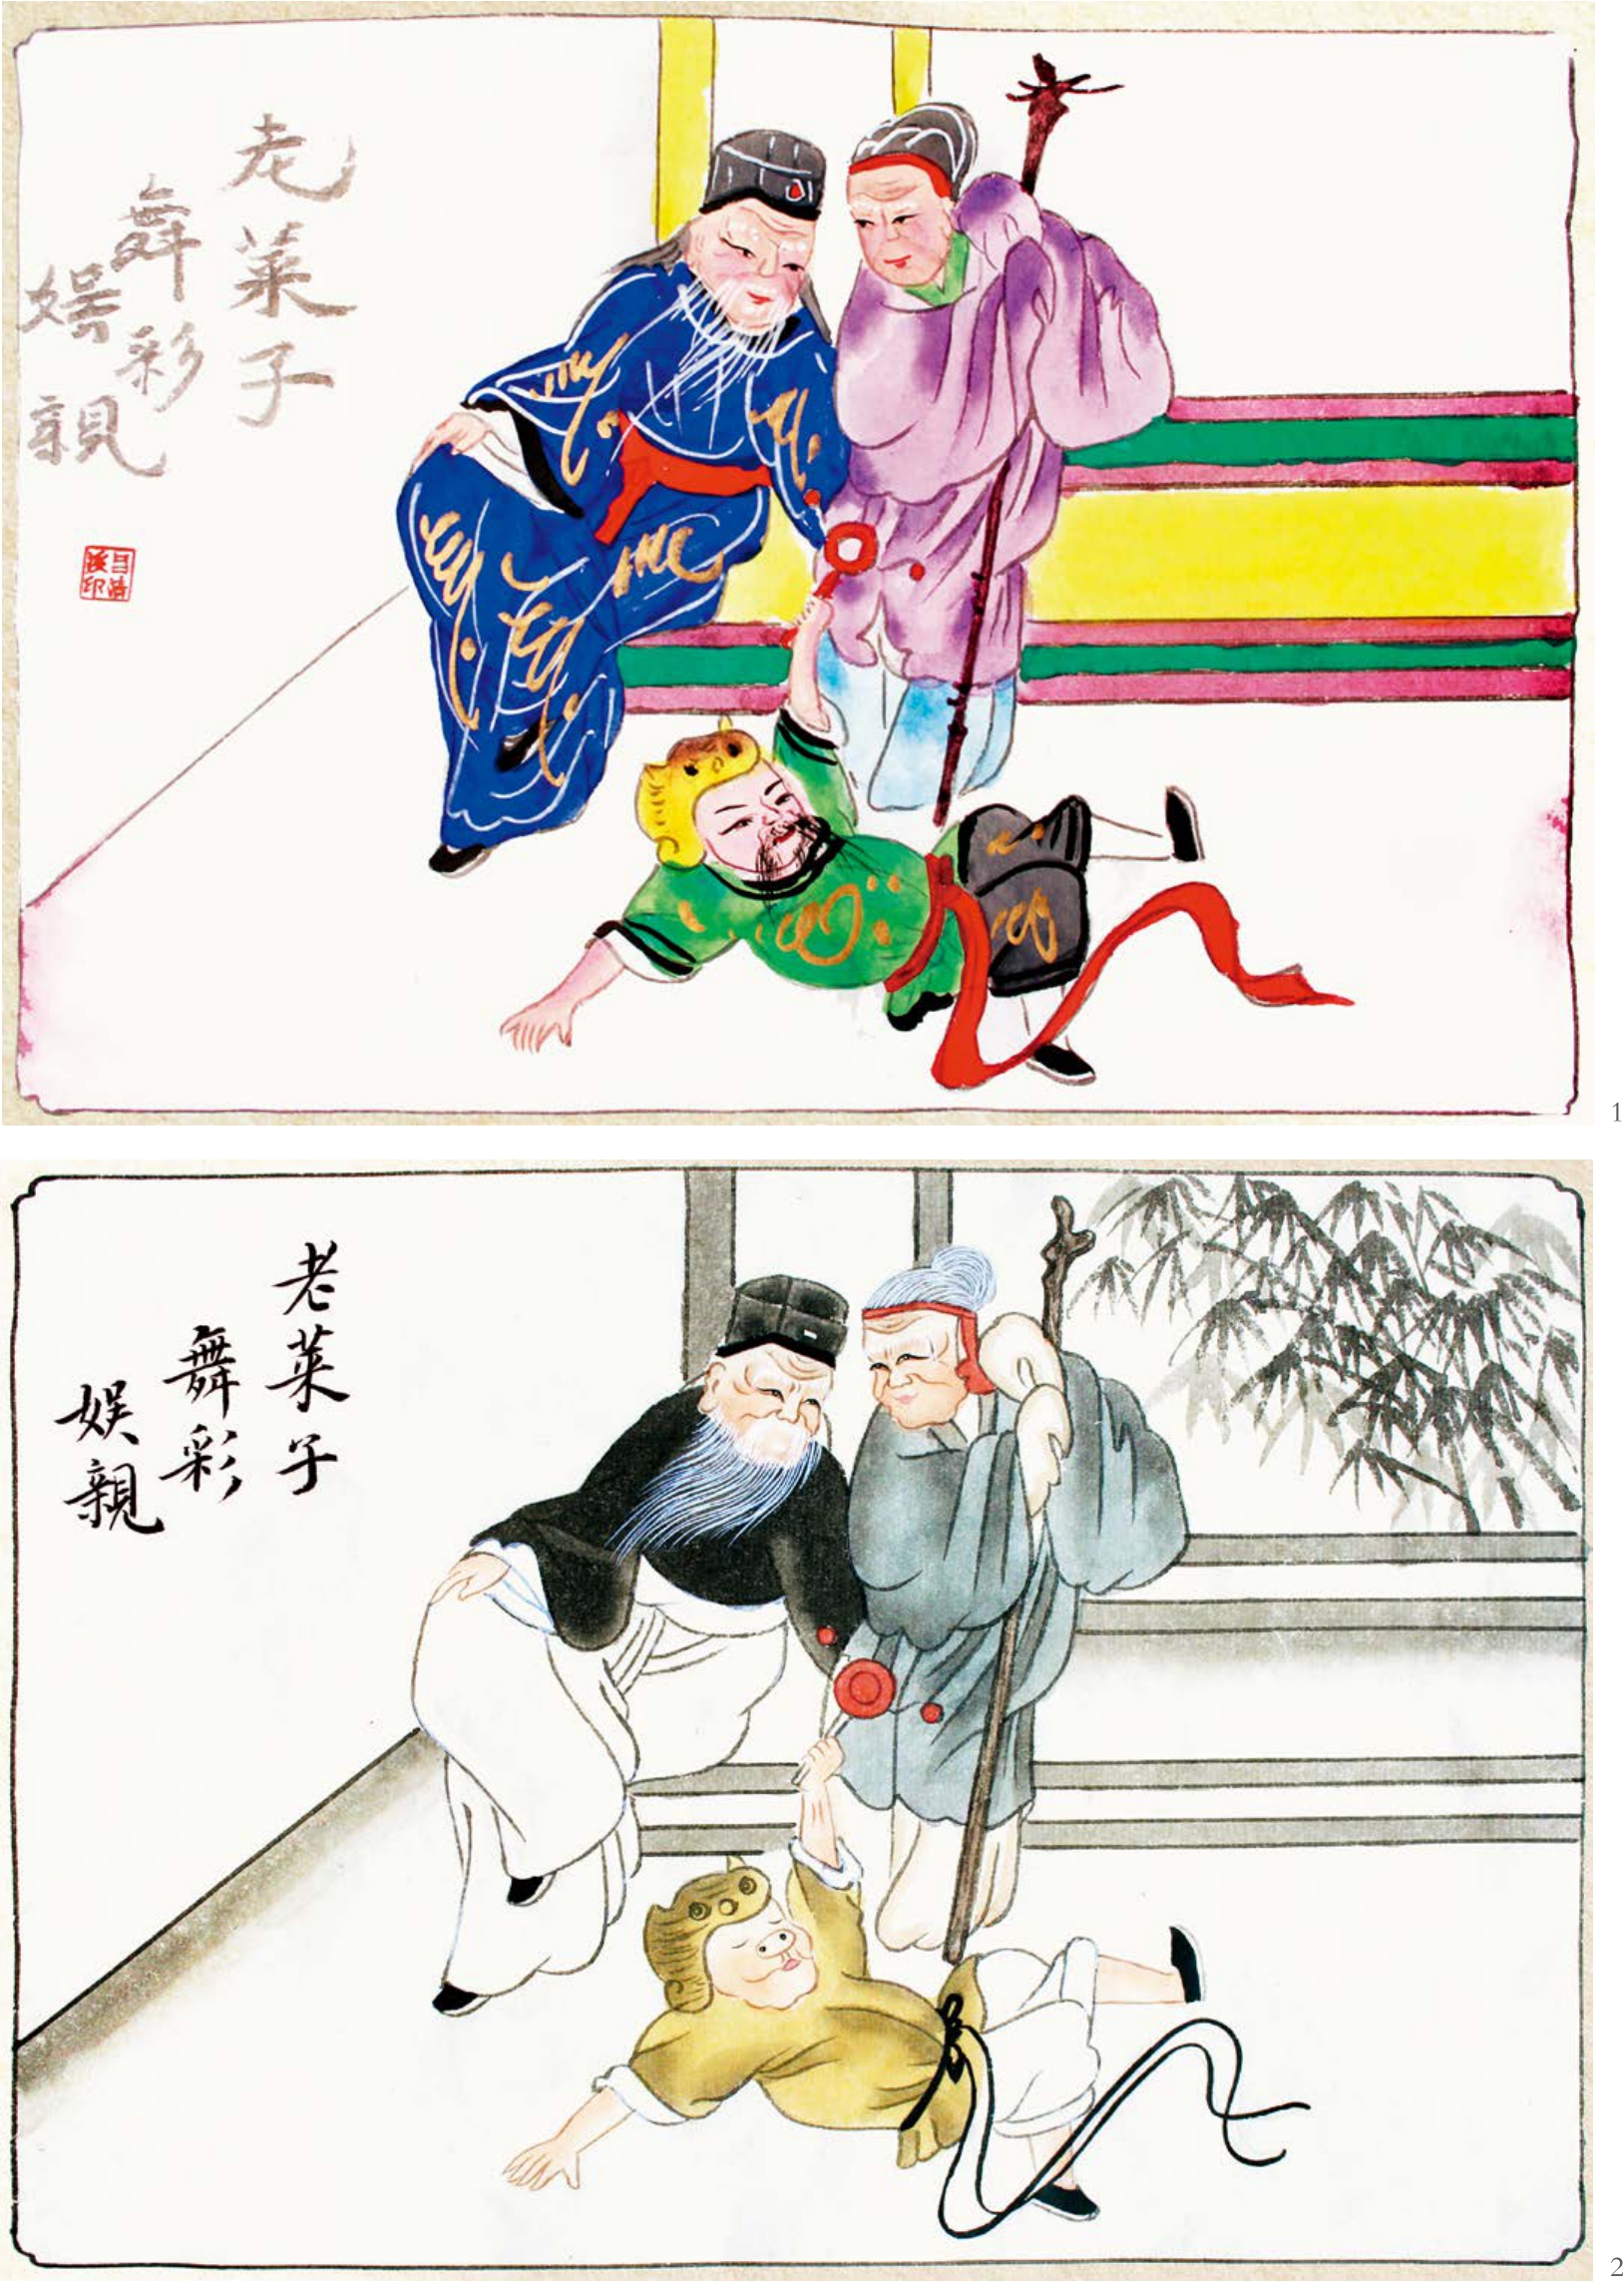 老莱子
舞彩
娛親
1
老莱子
舞彩
娱親
2